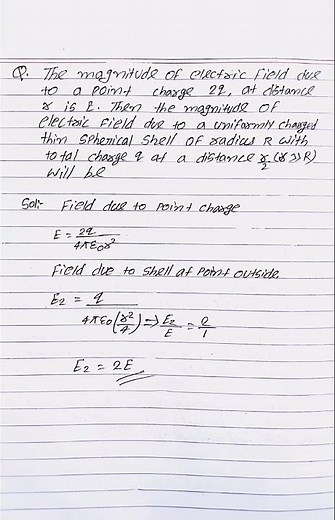 Q. The magnitude of electric field due
to a point charge 2q, at distance
r is E. Then the magnitude of
electric field due to a uniformly charged
thin spherical shell of radius R with
total charge q at a distance r/2 (r >> R)
will be
Sol:- Field due to point charge
E = 2q/4πε0r²
Field due to shell at point outside
E2 = q/4πε0(r²/4) ⇒ E2/E = 2/1
E2 = 2E